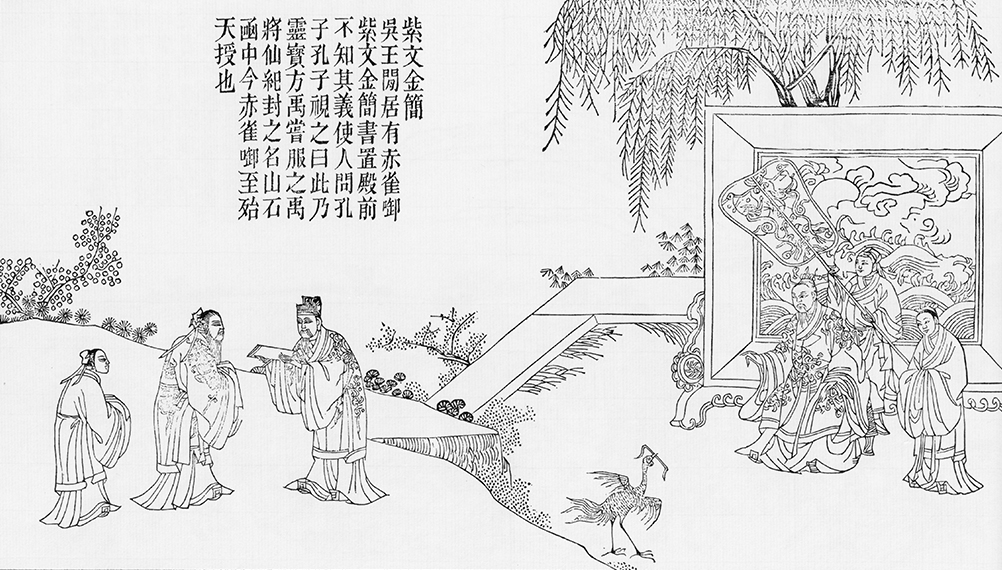 紫文金簡
吳王閒居有赤雀啣
紫文金簡書置殿前
不知其義使人問孔
子孔子視之曰此乃
靈寶方禹嘗服之禹
將仙紀封之名山石
凾中今赤雀啣至殆
天授也